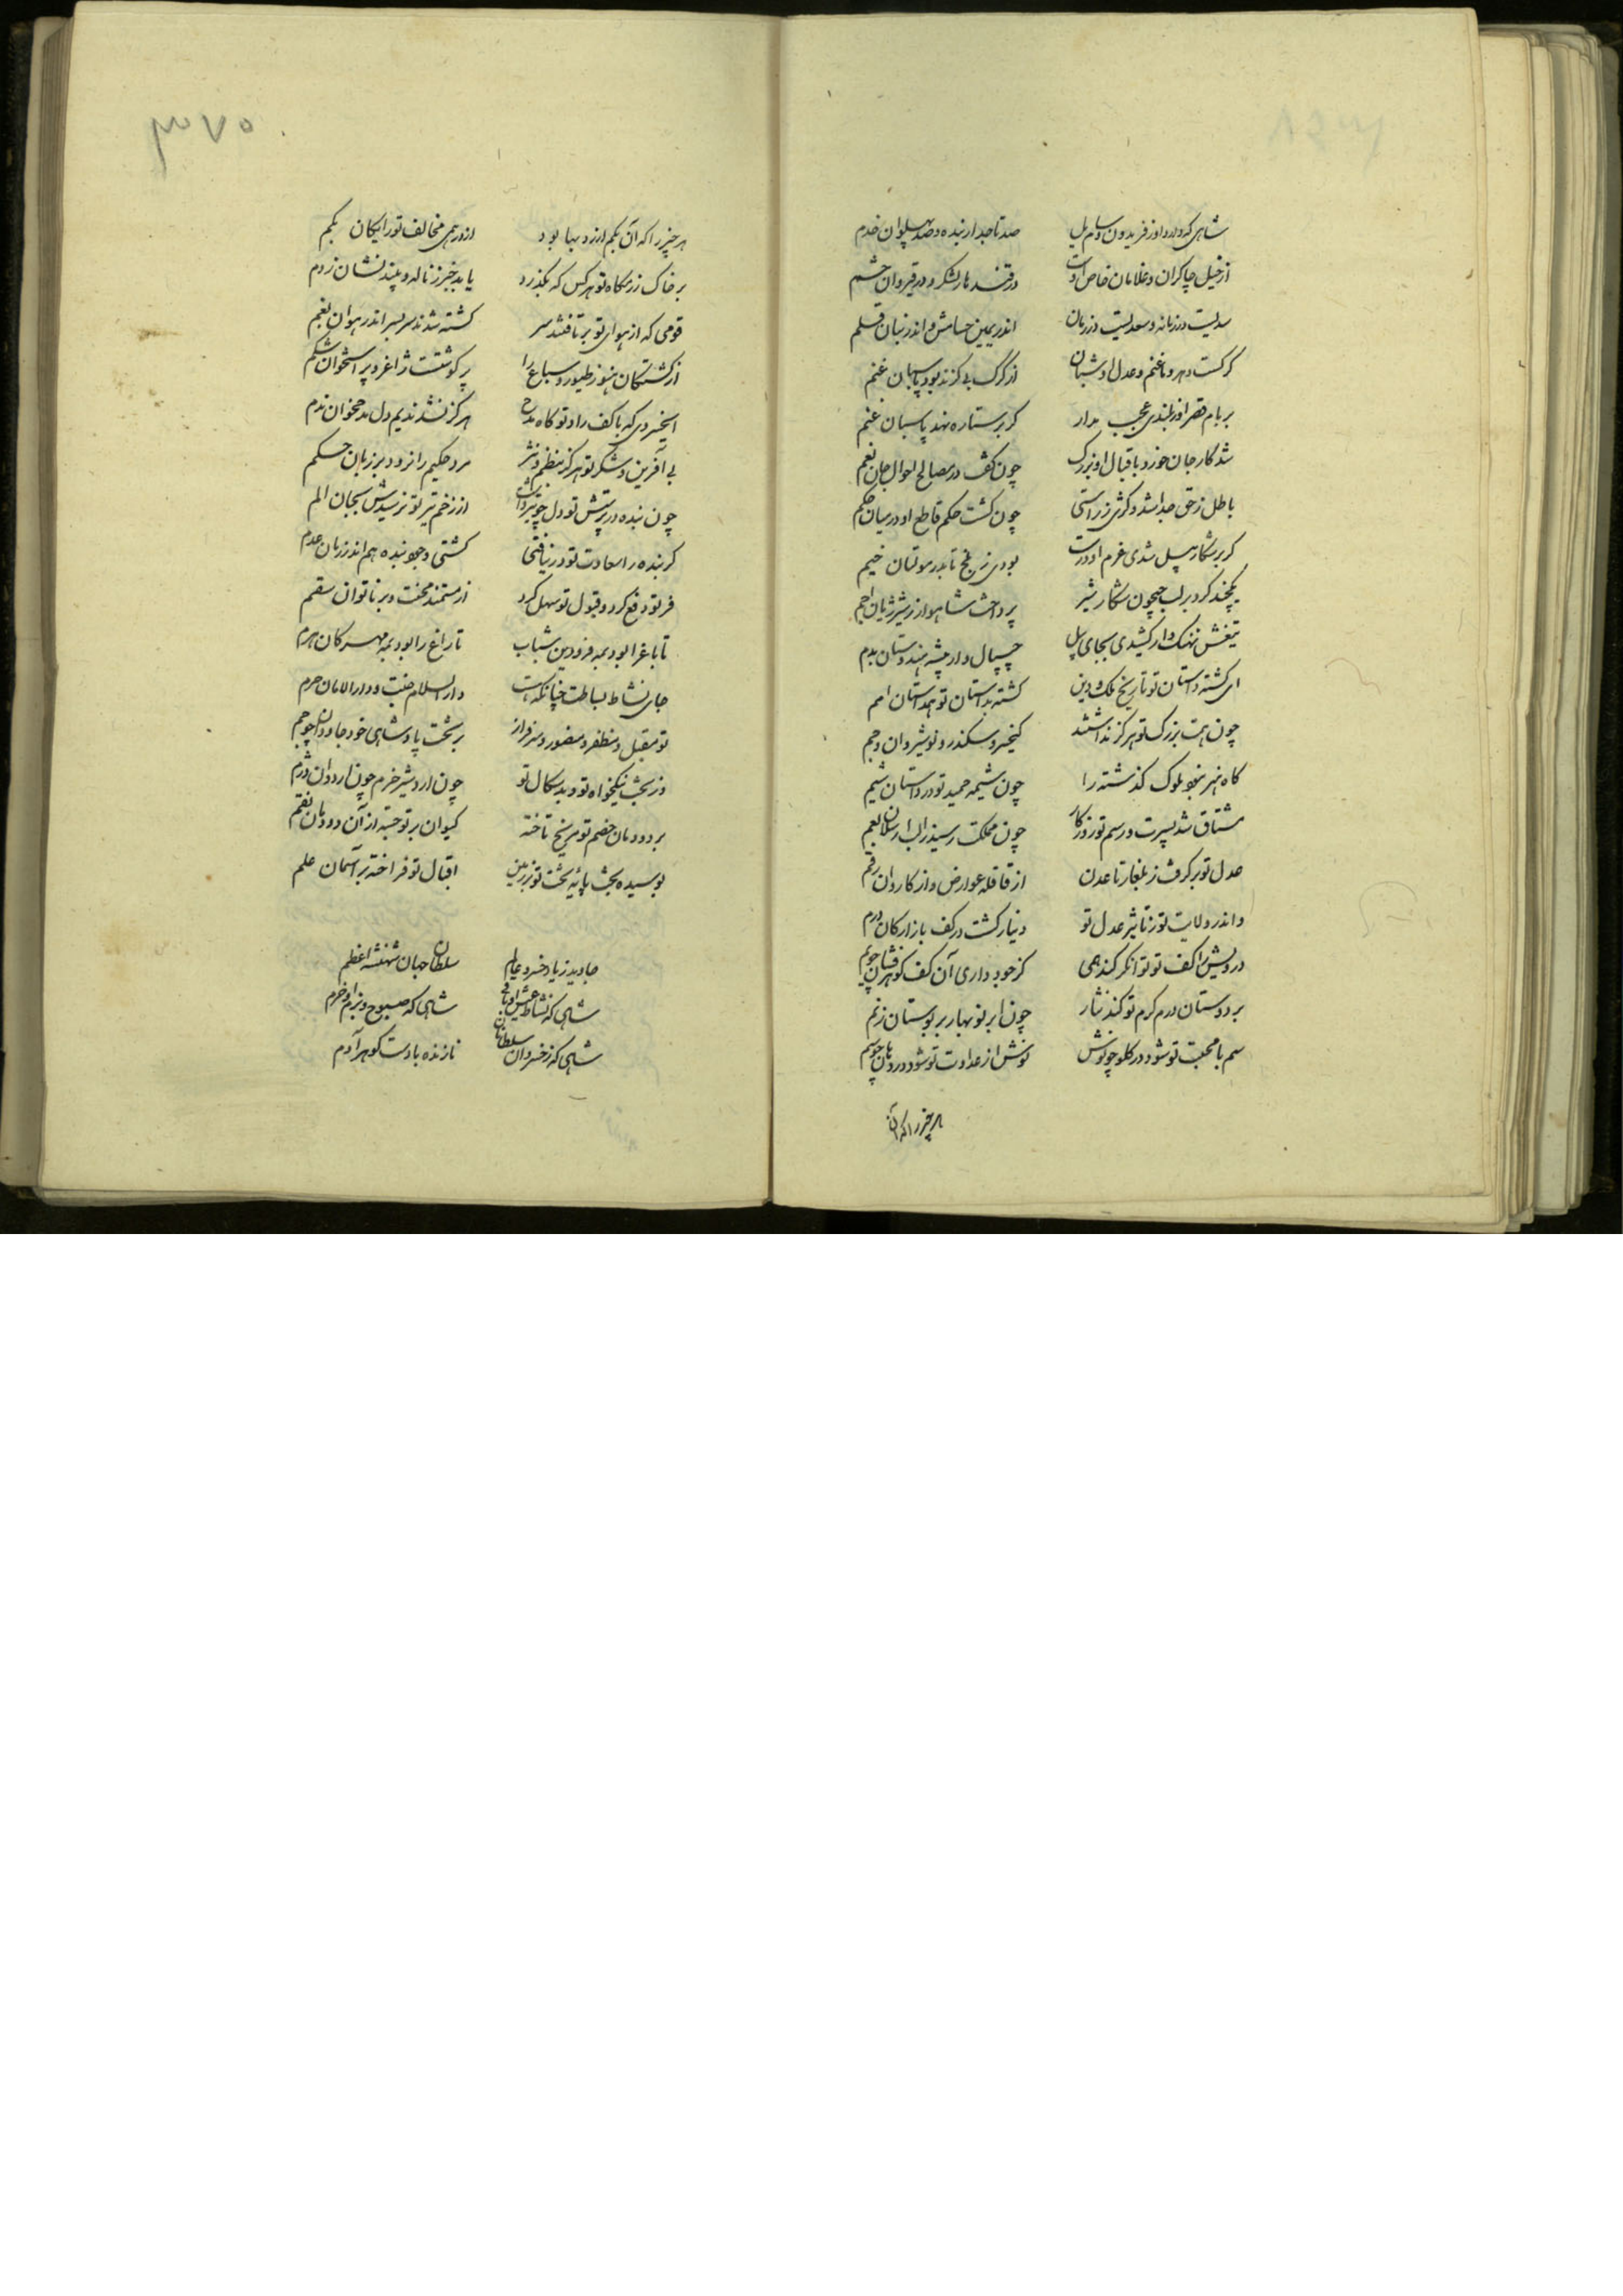 شاهی که دارد او ز فریدون و سام یل صد تاجدار بنده و صد پهلوان خدم
از خیل چاکران و غلامان خاص اوست در قند هار لشکر و در قیروان حشم
اندر یمین حسامش و اندر بنان قلم
کرکست دهر و ما غنم و عدل او شبان از کرک بی کزند بود پاسبان غنم
بر بام قصر او ز بلندی عجب مدار کر بر ستاره نهد پاسبان قدم
شد کار جان خورد باقبال او بزرک چون کف در مصالح احوال جان نعم
باطل ز حق جدا شد و کژی ز راستی چون کشت حکم قاطع او در میان حکم
کر بر شکار پیل شدی عزم او درست بودی ز بلخ تا بدر مولتان خیم
یکچند کرد بر لب جیحون شکار شیر پرداخت شاهوار ز شیر ژیان اجم
تیغش نهنک وار کشیدی بجای پیل چیپال وار بیشه هندوستان بدم
ای کشته داستان تو تاریخ ملک و دین کشته بداستان تو همداستان امم
چون همت بزرک تو هرکز نداشتند کیخسرو سکندر و نوشیروان و جم
کاه هنر بنجو ملوک کذشته را چون شیمه حمید تو در داستان شیم
مشتاق شد بسیرت و رسم تو روزکار چون مملکت رسید ز الب ارسلان بعم
عدل تو برکرفت ز بلغار تا عدن از قافله عوارض و از کاروان رقم
و اندر ولایت تو ز تاثیر عدل تو دینار کشت در کف بازارکان درم
درویش را کف تو توانکر کند همی کز جود داری آن کف کوهرفشان چو یم
بر دوستان درم کرم تو کند نثار چون ابر نوبهار بر بوستان زنم
سم با محبت تو شود در کلو چو نوش نوش از عداوت تو شود در دهان چو سم
هر چیز را که آن
۳۷۰
هر چیز را که آن بکم ارزد بها بود ارزد همی مخالف تو رایکان بکم
بر خاک رزمکاه تو هر کس که بکذرد یابد بجیز ز ناله و بیند نشان ز دم
قومی که از هوای تو بر تافتند سر کشته شدند سر بسر اندر هوان بغم
از کشتکان هنوز طیور و سباع را پر کوشتست ژاغر و پر استخوان شکم
ایخسروی که با کف راد تو کاه مدح هرکز نشد ندیم دل مدح خوان ندم
بی آفرین و شکر تو هرکز بنظم و نثر مرد حکیم را نرود بر زبان حکم
چون بنده در پرستش تو دل چو تیر داشت از زخم تیر تو نرسیدش بجان الم
کر بنده را سعادت تو در نیافتی کشتی وجود بنده هم اندر زمان عدم
فر تو دفع کرد و قبول تو سهل کرد از مستمند محنت و بر ناتوان سقم
تا باغ را بود بمه فرودین شباب تا راغ را بود بمه مهرکان هرم
جای نشاط بساطت چنانکه هست دارالسلام جنت و دارالامان حرم
تو مقبل و مظفر و منصور و سرفراز بر تخت پادشاهی خود جاودان چو جم
وز بخت نیکخواه تو و بدسکال تو چون اردشیر خرم چون اردوان دژم
بر دودمان خصم تو مریخ تاخته کیوان بر تو جسته از آن دودمان نقم
بوسیده بخت پایه تخت تو بر زمین اقبال تو فراخته بر آسمان علم
جاوید زیاد خسرو عالم سلطان جهان شهنشه اعظم
شاهی که نشاط عیش او باقی شاهی که صبوح و بزم او خرم
شاهی که ز خسروان و سلطانان نازنده بدوست کوهر آدم